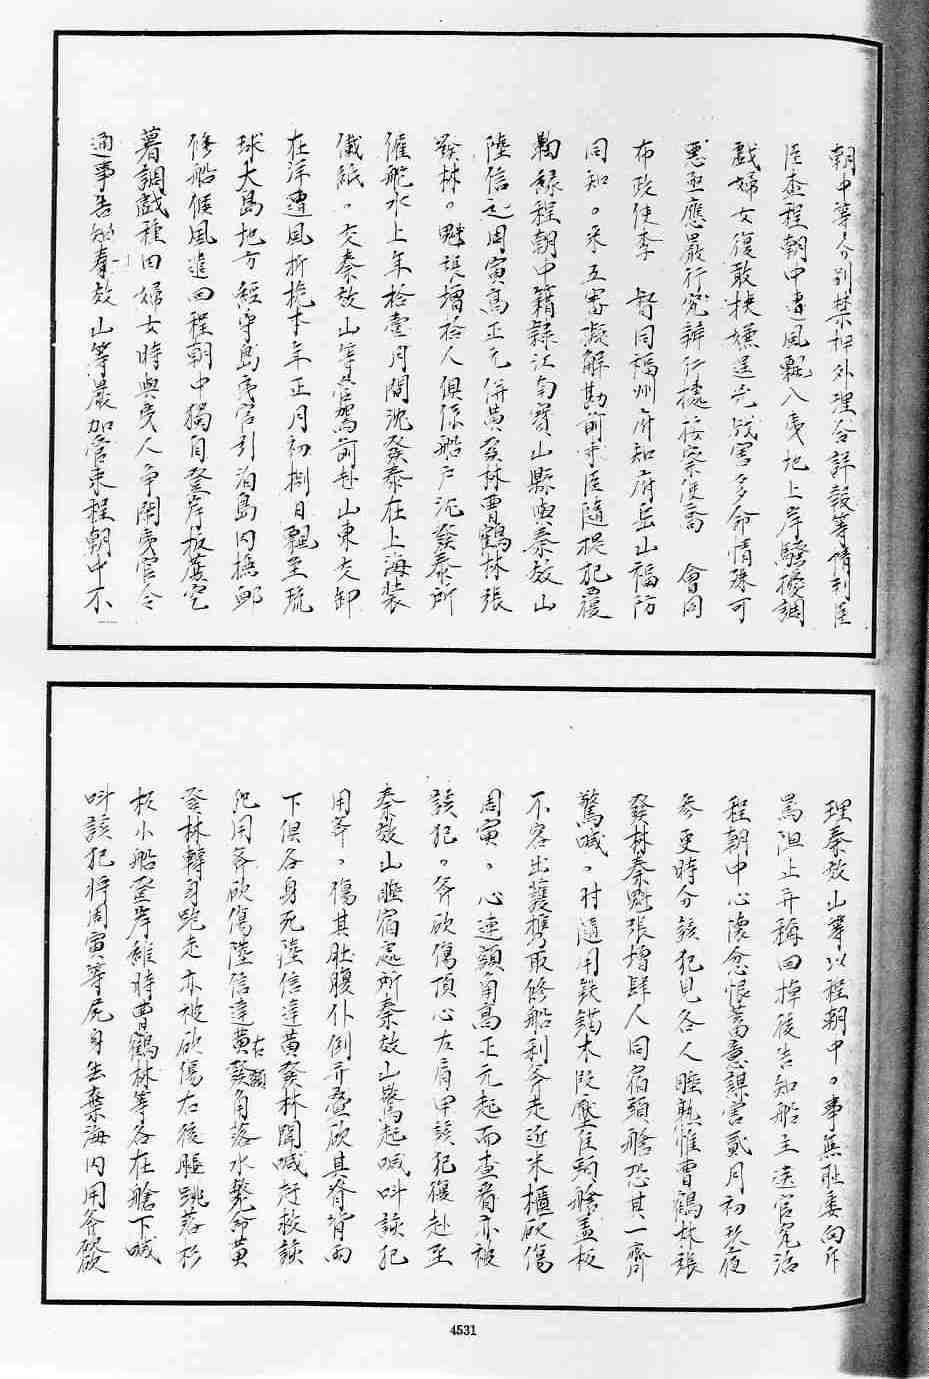 朝中等分別禁押外理合詳報等情到臣
臣查程朝中遭風飄入夷地上岸騷擾調
戲婦女復敢挾嫌逞兇戕害多命情殊可
惡亟應嚴行究辦行據按察使喬 會同
布政使李 督同福州府知府岳山福防
同知。米五審擬解勘前來臣隨提犯覆
鞫緣程朝中籍隸江南寶山縣與秦效山
陸信起周寅高正元併黃發林曹鶴林張
發林。魁張增拾人俱係船戶沈發泰所
僱舵水上年拾壹月間沈發泰在上海裝
儎紙。交秦效山等管駕前赴山東交卸
在洋遭風折桅本年正月初捌日飄至琉
球大島地方經守島夷官引泊島內撫卹
修船候風進回程朝中獨自登岸
暮調戲種田婦女時與夷人爭鬧夷官令
通事告知秦效山等嚴加管束程朝中不
理秦效山等以程朝中。事無耻妄向斥
罵阻止并稱回掉後告知船主送官究治
程朝中心懷忿恨蓄意謀害貳月初玖夜
參更時分該犯見各人睡熟惟曹鶴林張
發林秦魁張增肆人同宿頭艙恐其一齊
驚喊。肘隨用鉄錨木段壓住頭艙蓋板
不容出護携取修船利斧走近米櫃砍傷
周寅。心連額角高正元起而查看亦被
該犯。斧砍傷頂心左肩甲該犯復赴至
秦效山睡宿處所秦效山驚起喊叫該犯
用斧。傷其肚腹仆倒并疊砍其脊背兩
下俱各身死陸信達黃發林聞喊赶救該
犯用斧砍傷陸信達黃發右額角落水斃命黃
發林轉身跑走亦被砍傷右後腿跳落杉
板小船登岸維時曹鶴林等各在艙下喊
叫該犯將周寅等屍身坐棄海內用斧砍
4531